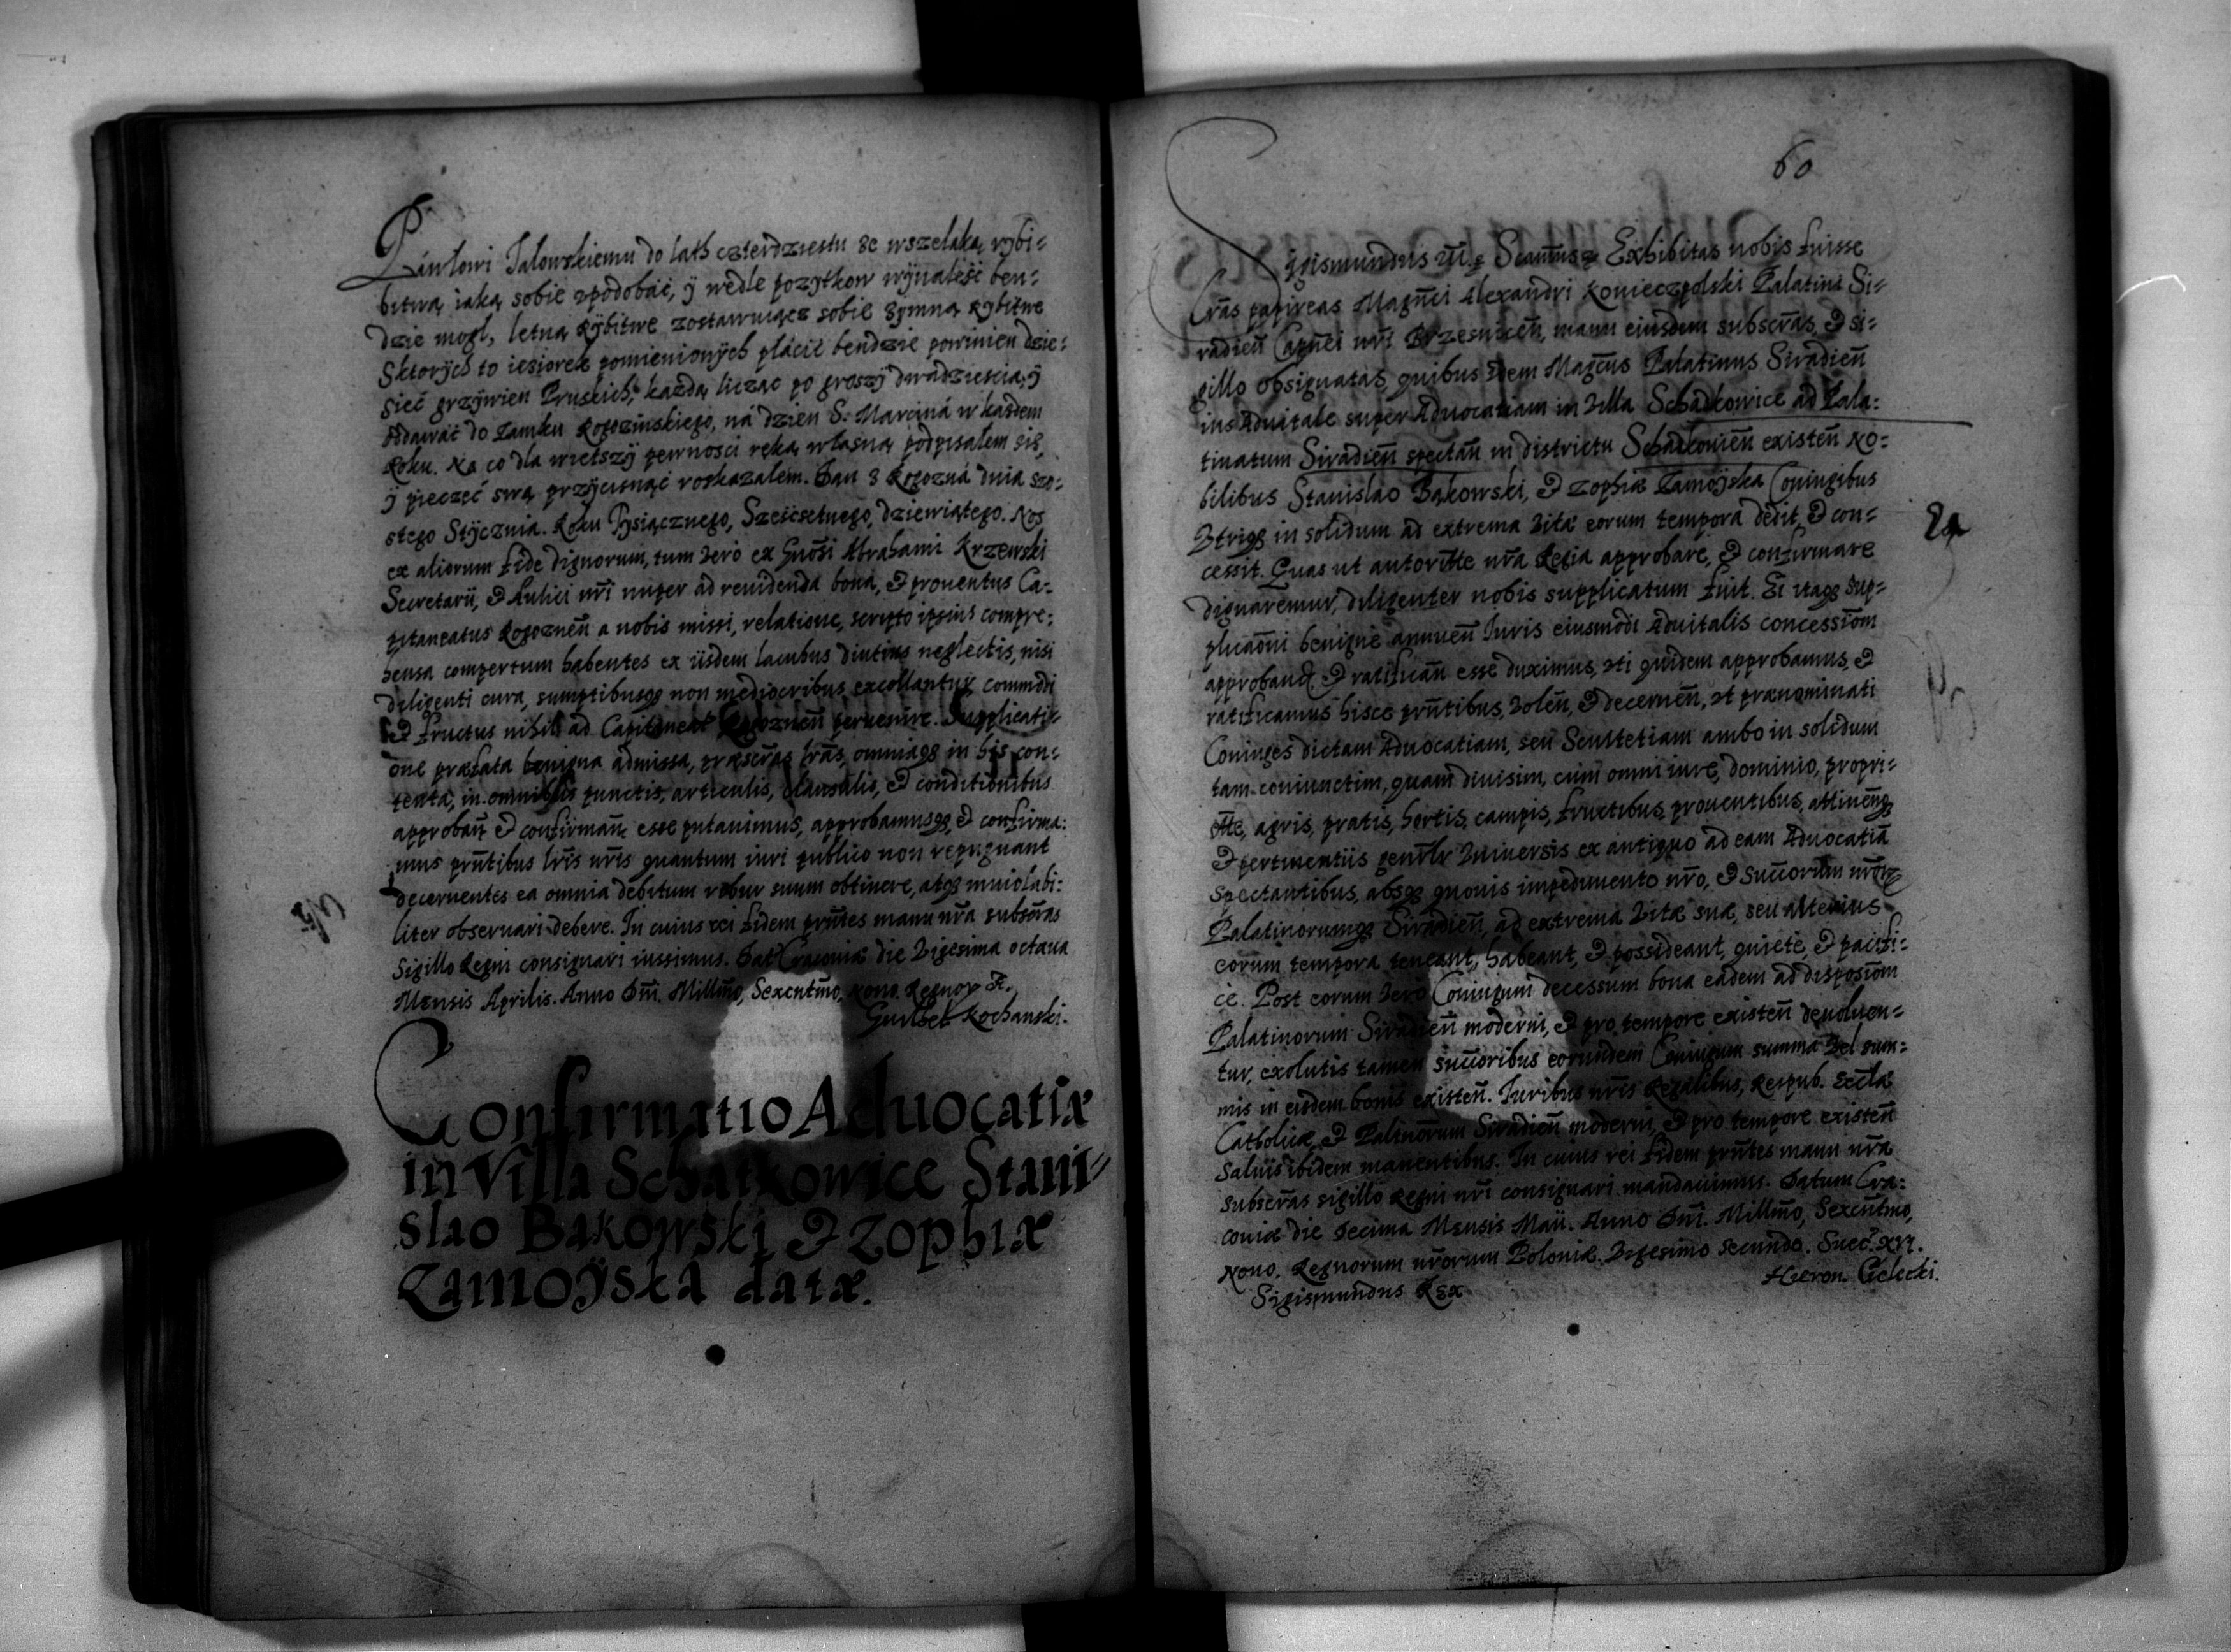 Páwłowi Jałowskiemu do lath czterdziestu ze wszelaką rybi=
bitwą iaką sobie spodobać, ÿ wedle pozytkow wÿnaleść ben=
dzie mogł, letną rÿbitwe zostawuiącz sobie zÿmną rybitwe
Sktorÿch to iesiorek pomienionÿch płácić bendzie powinien dzie=
sieć grzÿwien Pruskich, każdą licząc po groszÿ dwadziescia, ÿ
oddawáć do Zamku Rogozinskiego, ná dzien S. Marciná w każdem
Roku. Na co dla wietszÿ pewnosci ręką własną podpisałem się,
ÿ pieczęć swą przÿcisnąć roskazałem. Dan z Rogozná dnia szo=
stego Stÿcznia. Roku Tysiącznego, Sześcsetnego, dziewiątego. Nos
ex aliorum fide dignorum, tum vero ex Gnōsi Abrahami Krzewski
Secretarii, & Aulici nr̄i nuper ad reuidenda bona, & prouentus Ca=
pitaneatus Rogoznen̄ a nobis missi, relatione, scripto ipsius compre=
hensa compertum habentes ex iisdem lacubus diutius neglectis, nisi
diligenti cura, sumptibusq3 non mediocribus excollantur commodi
& Fructus nihil ad Capitaneat Rogoznen̄ peruenire. Supplicati=
one præfata benigna admissa, præscr̄as lr̄as, omniaq3 in his con=
tenta, in omnibus punctis, articulis, clausulis, & conditionibus
approban̄ & confirman̄ esse putauimus, approbamusq3, & confirma=
mus prn̄tibus lr̄is nr̄is quantum iuri publico non repugnant
decernentes ea omnia debitum robur suum obtinere, atq3 inuiolabi=
liter obseruari debere. In cuius rei fidem prn̄tes manu nr̄a subscr̄as
Sigillo Regni consignari iussimus. Dat Cracouiæ die Vigesima octaua
Mensis Aprilis. Anno Dn̄i. Millm̄o, Sexcntm̄o, Nono. Regnor
Kochanski.
Confirmatio Aduocatiæ
in Villa Schatkowice Stani=
slao Bąkowski & Zophiæ
Zamoÿska datæ.
60
Sigismundus Exhibitas nobis fuisse
lr̄as papireas Magn̄ci Alexandri Koniecżpolski Palatini Si=
radien̄ Capn̄ei nr̄i Brzesnicen̄, manu eiusdem subscr̄as, & si=
gillo obsignatas, quibus idem Magc̄us Palatinus Siradien̄
ius Aduitale super Aduocatiam in Villa Schadkowice ad Pala=
tinatum Siradien̄ spectan̄ in districtu Schadkouien̄ existen̄ No=
bilibus Stanislao Bąkowski, & Zophiæ Zamoÿska Coniugibus
Vtriq3 in solidum ad extrema vitæ eorum tempora dedit, & con=
cessit. Quas ut autorit̄te nr̄a Regia approbare, & confirmare
dignaremur, diligenter nobis supplicatum fuit. Ei itaq3 sup=
plicaōni benigne annuen̄ Iuris eiusmodi Aduitalis concessiōm
approband̄, & ratifican̄ esse duximus, vti quidem approbamus, &
ratificamus hisce prn̄tibus, Volen̄, & decernen̄, vt prænominati
Coniuges dictam Aduocatiam, seu Scultetiam ambo in solidum
tam coniunctim, quam diuisim, cum omni iure, dominio, propri=
etāte, agris, pratis, hortis, campis, fructibus, prouentibus, attinen̄q3
& pertinentiis genr̄lr Vniuersis ex antiquo ad eam Aduocatiā
spectantibus, absq3 quouis impedimento nr̄o, & Succorum nr̄or
Palatinorumq3 Siradien̄, ad extrema Vitæ suæ, seu alterius
eorum tempora teneant, habeant, & possideant, quietè, & pacifi=
cè. Post eorum vero Coniugum decessum bona eadem ad disposiōm
Palatinorum Siradien̄ moderni, & pro tempore existen̄ deuoluen=
tur, exolutis tamen succoribus eorundem Coniugum summa Vel sum=
mis in eisdem bonis existen̄. Iuribus nr̄is Regalibus, Reipub. Eccl̄æ
Catholicæ, & Palinorum Siradien̄ moderni, & pro tempore existen̄
Saluis ibidem manentibus. In cuius rei fidem prn̄tes manu nr̄a
subscr̄as sigillo Regni nr̄i consignari mandauimus. Datum Cra=
couiæ die Decima Mensis Maii. Anno Dn̄i. Millm̄o, Sexcn̄tmo,
Nono. Regnorum nr̄orum Poloniæ. Vigesimo secundo. Suec. XVI.
Sigismundus Rex